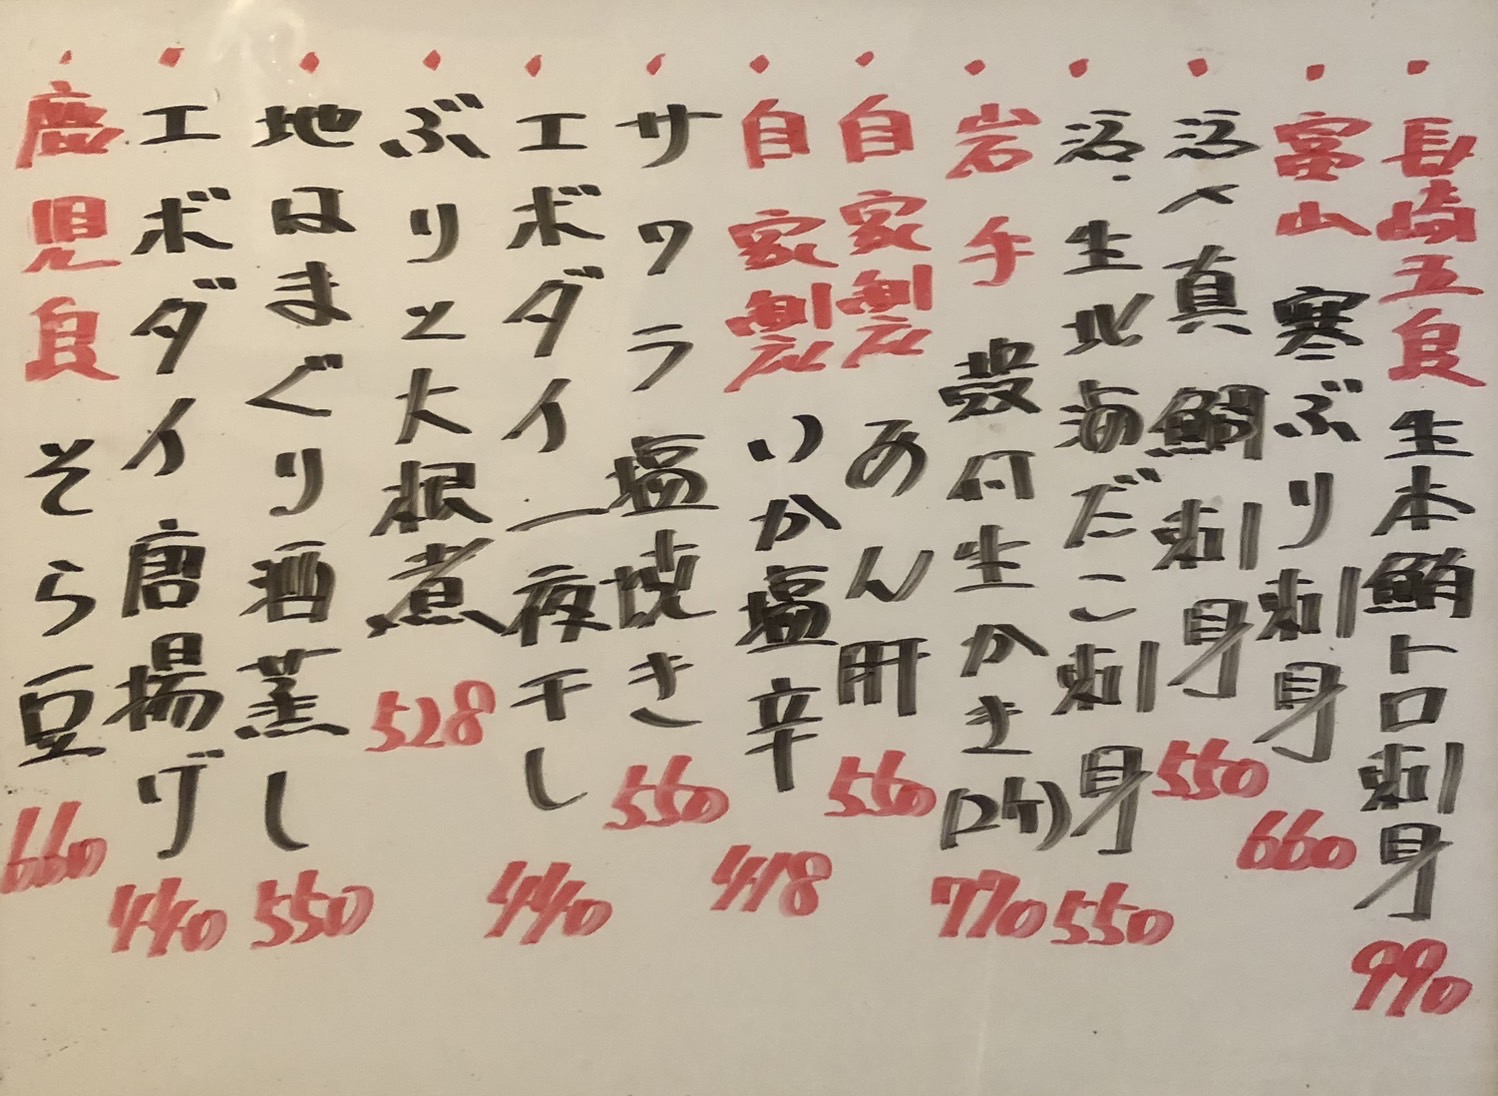 ・長崎五島生本鮪トロ刺身 990
・富山 寒ぶり刺身 660
・活〆真鯛刺身 550
・活・生北海だこ刺身 550
・岩手 殻付生かき(2ケ) 770
・自家製 あん肝 560
・自家製 いか塩辛 418
・サワラ 塩焼き 560
・エボダイ 一夜干し 440
・ぶりと大根煮 528
・地はまぐり酒蒸し 550
・エボダイ 唐揚げ 440
・鹿児島 そら豆 660